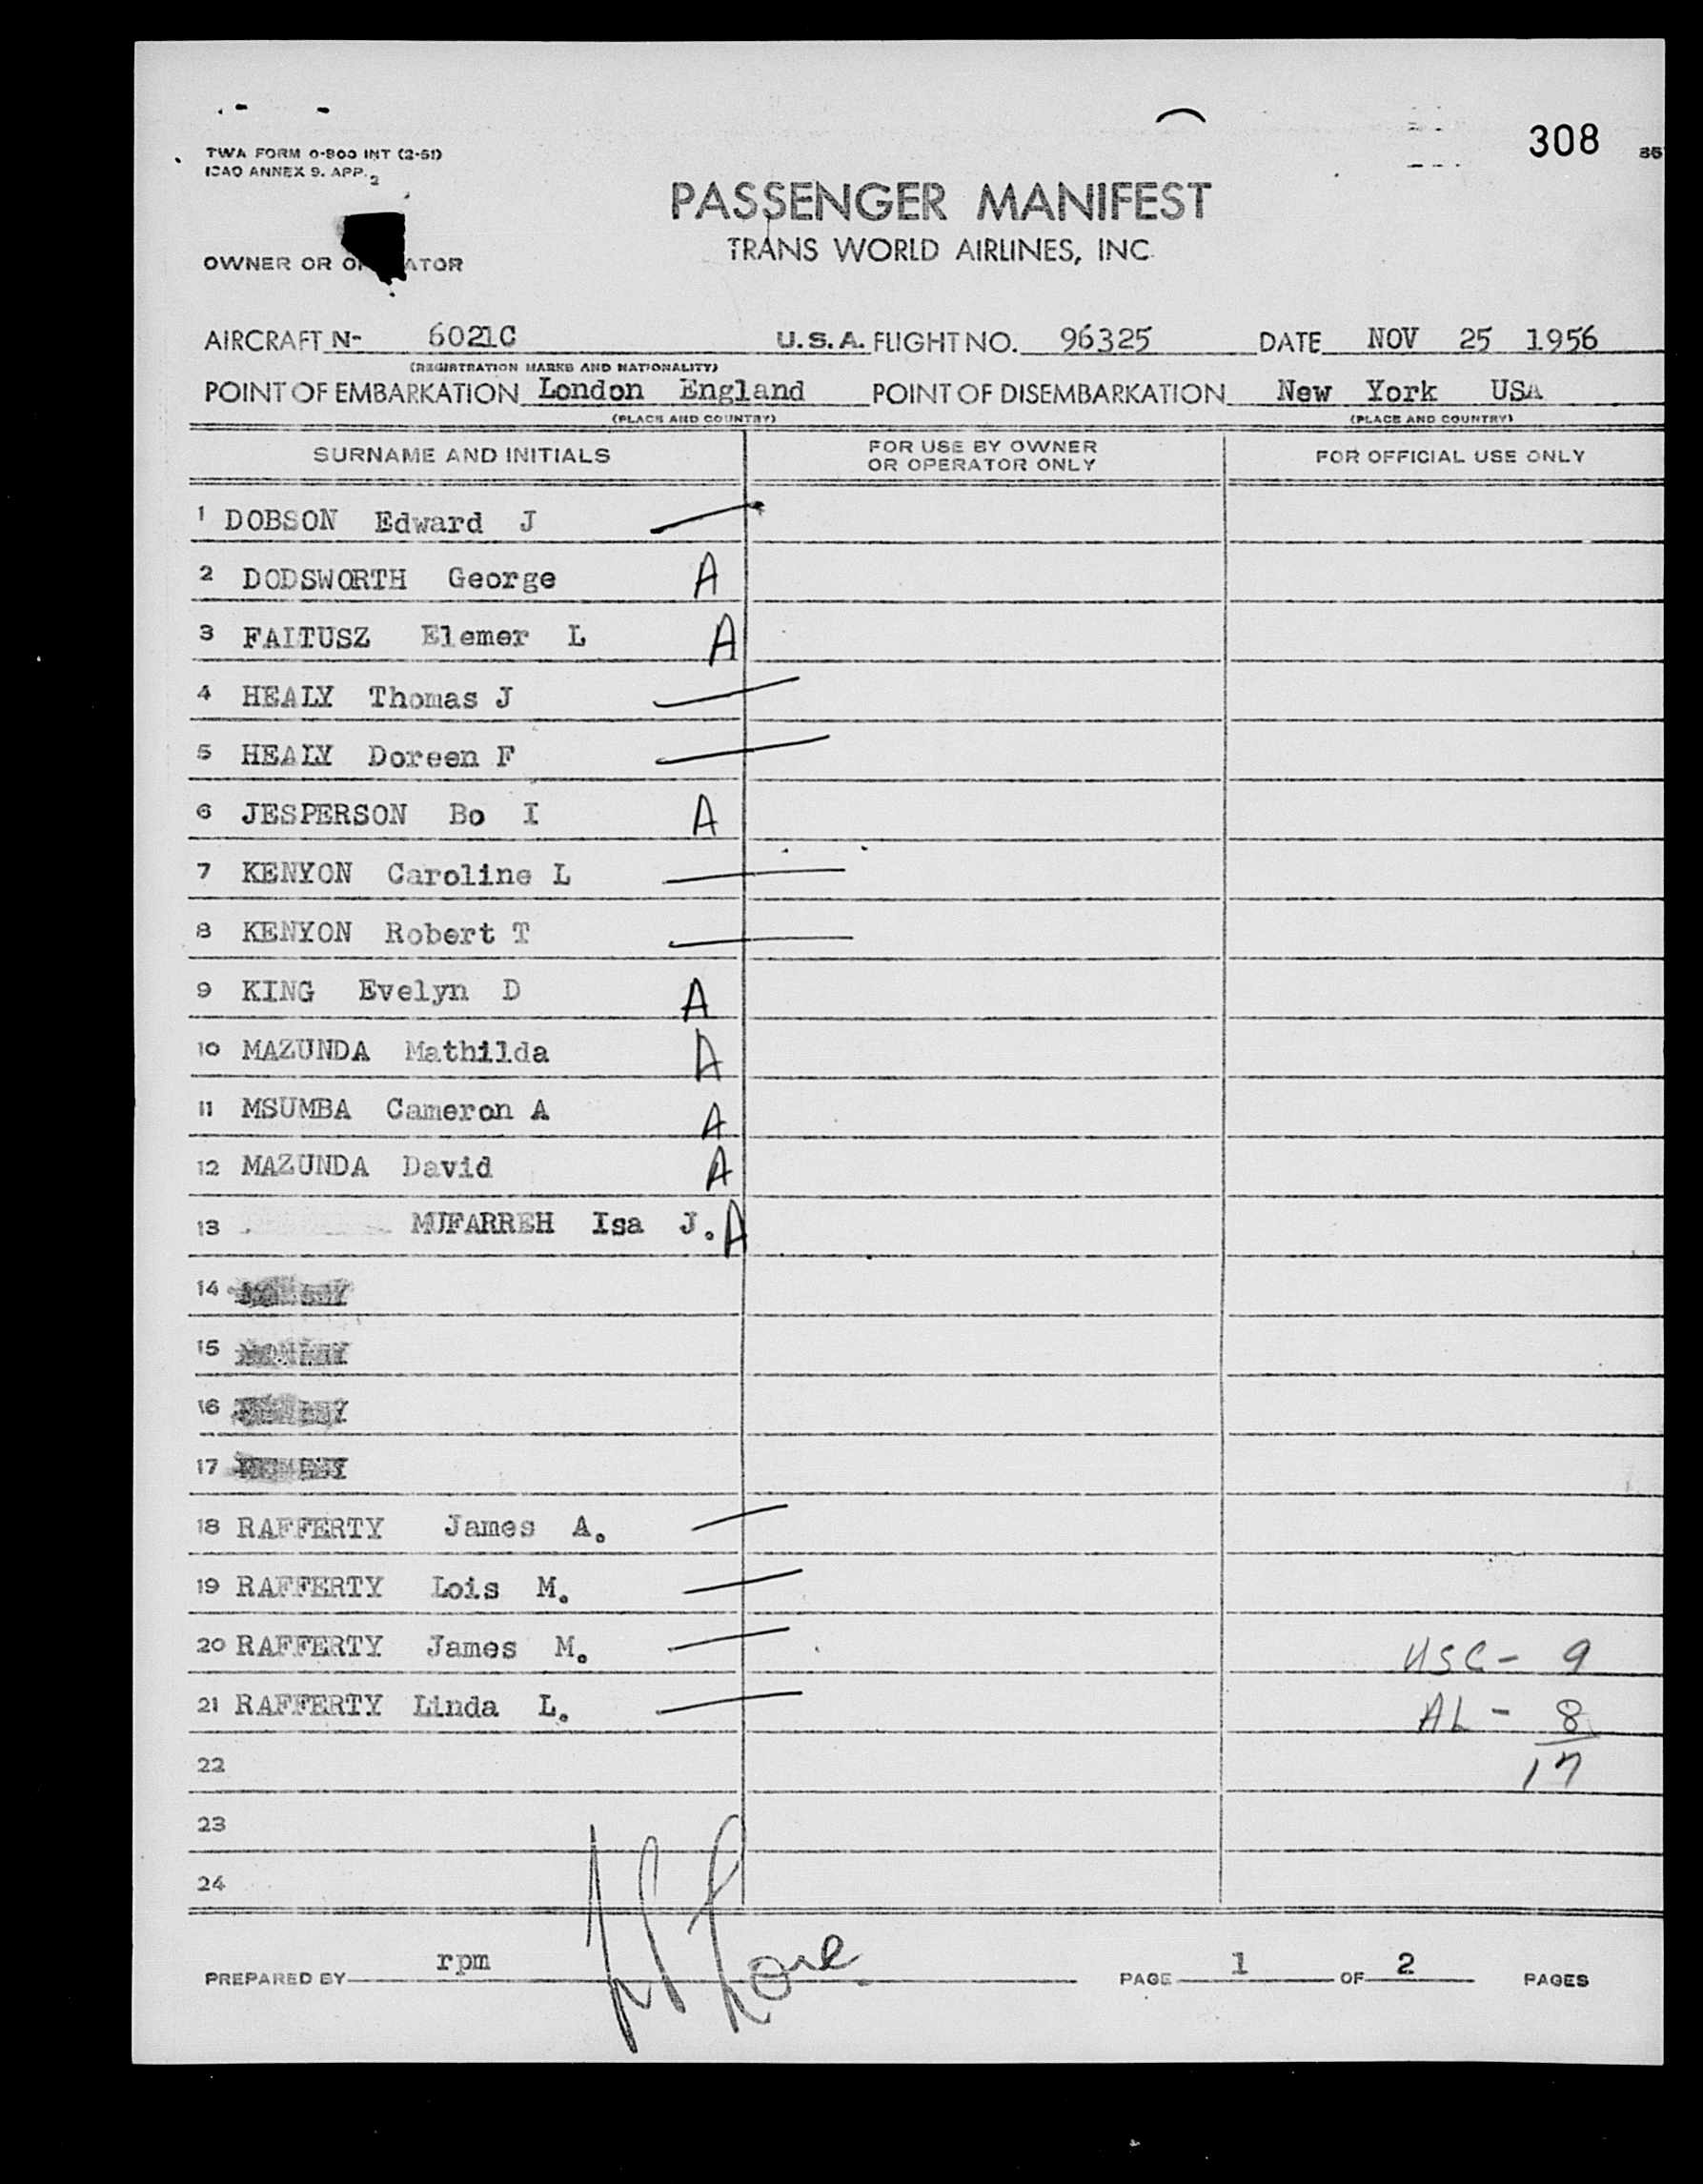 308
TWA FORM 0-800 INT (2-51)
ICAO ANNEX 9. APP. 2
PASSENGER MANIFEST
TRANS WORLD AIRLINES, INC.
OWNER OR OPERATOR
AIRCRAFT N- 6021C U.S.A. FLIGHT NO. 96325 DATE NOV 25 1956
(REGISTRATION MARKS AND NATIONALITY)
POINT OF EMBARKATION London England POINT OF DISEMBARKATION New York USA
(PLACE AND COUNTRY) (PLACE AND COUNTRY)
SURNAME AND INITIALS FOR USE BY OWNER OR OPERATOR ONLY FOR OFFICIAL USE ONLY
1 DOBSON Edward J
2 DODSWORTH George A
3 FAITUSZ Elemer L A
4 HEALY Thomas J
5 HEALY Doreen F
6 JESPERSON Bo I A
7 KENYON Caroline L
8 KENYON Robert T
9 KING Evelyn D A
10 MAZUNDA Mathilda A
11 MSUMBA Cameron A A
12 MAZUNDA David A
13 MUFARREH Isa J. A
14
15
16
17
18 RAFFERTY James A.
19 RAFFERTY Lois M.
20 RAFFERTY James M. USC - 9
21 RAFFERTY Linda L. AL - 8
22 17
23
24
PREPARED BY rpm PAGE 1 OF 2 PAGES